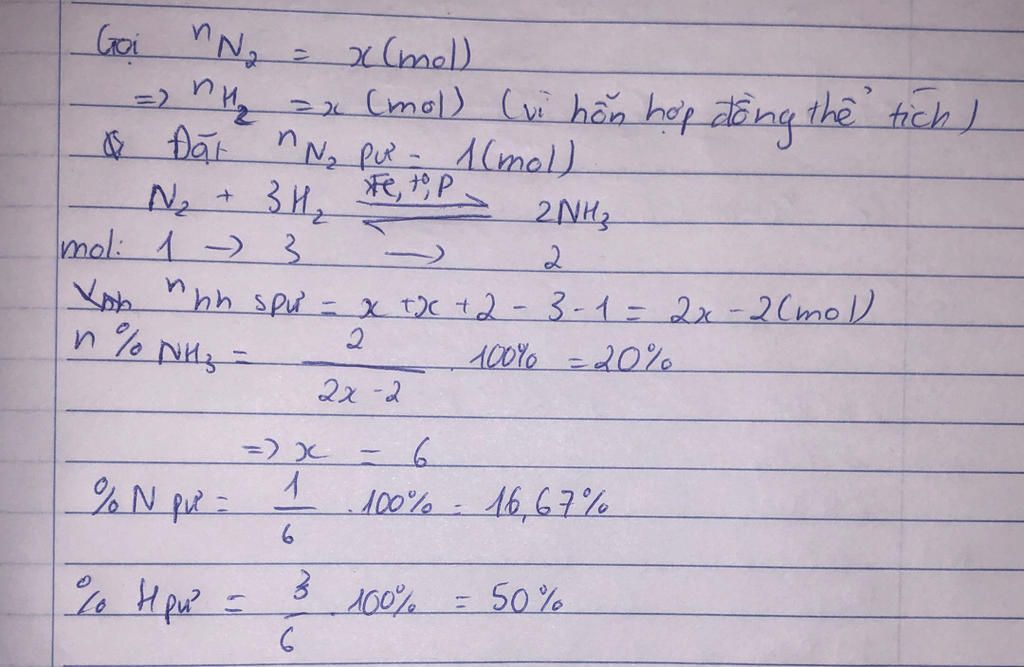 Gọi nN₂ = x (mol)
=> nH₂ = x (mol) (vì hỗn hợp đồng thể tích)
Đặt nN₂ pứ = 1 (mol)
N₂ + 3H₂ ⇌ 2NH₃ (Fe, t°, P)
mol: 1 → 3 → 2
n hh spứ = x + x + 2 - 3 - 1 = 2x - 2 (mol)
n % NH₃ = 2/(2x - 2) . 100% = 20%
=> x = 6
% N pứ = 1/6 . 100% = 16,67%
% H pứ = 3/6 . 100% = 50%